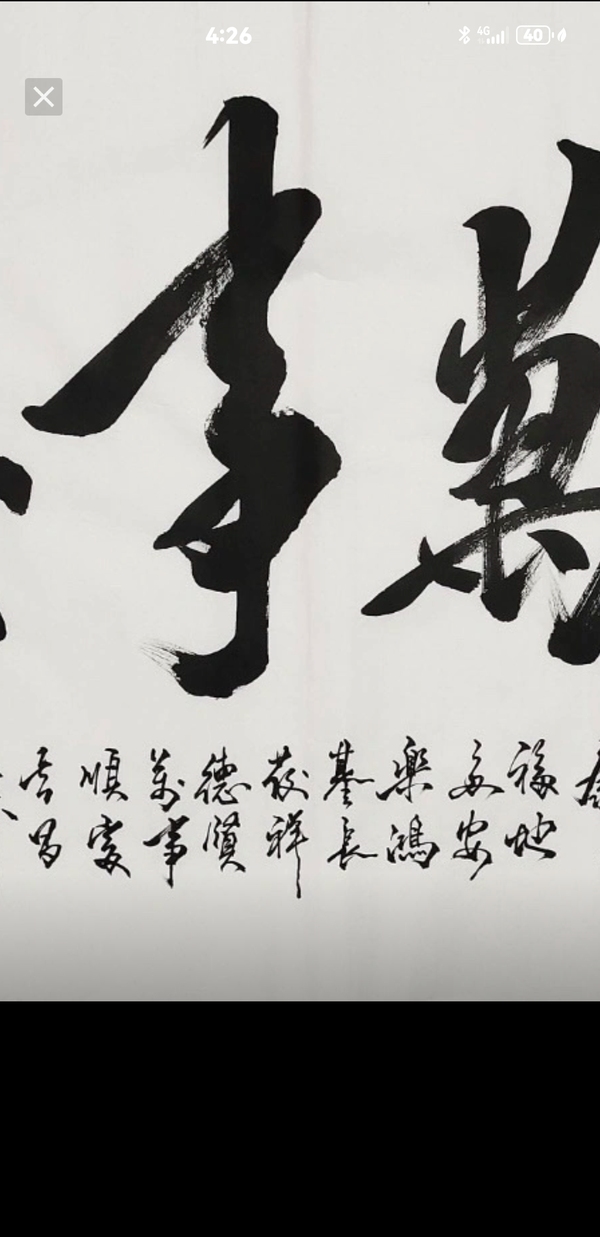 4:26
4G
40
萬事
福地
安
樂鴻
基長
發祥
德
萬事
順
吉昌